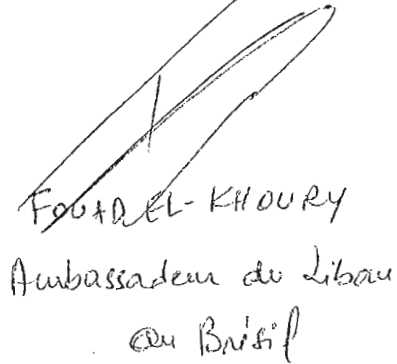 FOUAD EL-KHOURY
Ambassadeur du Liban
au Brésil